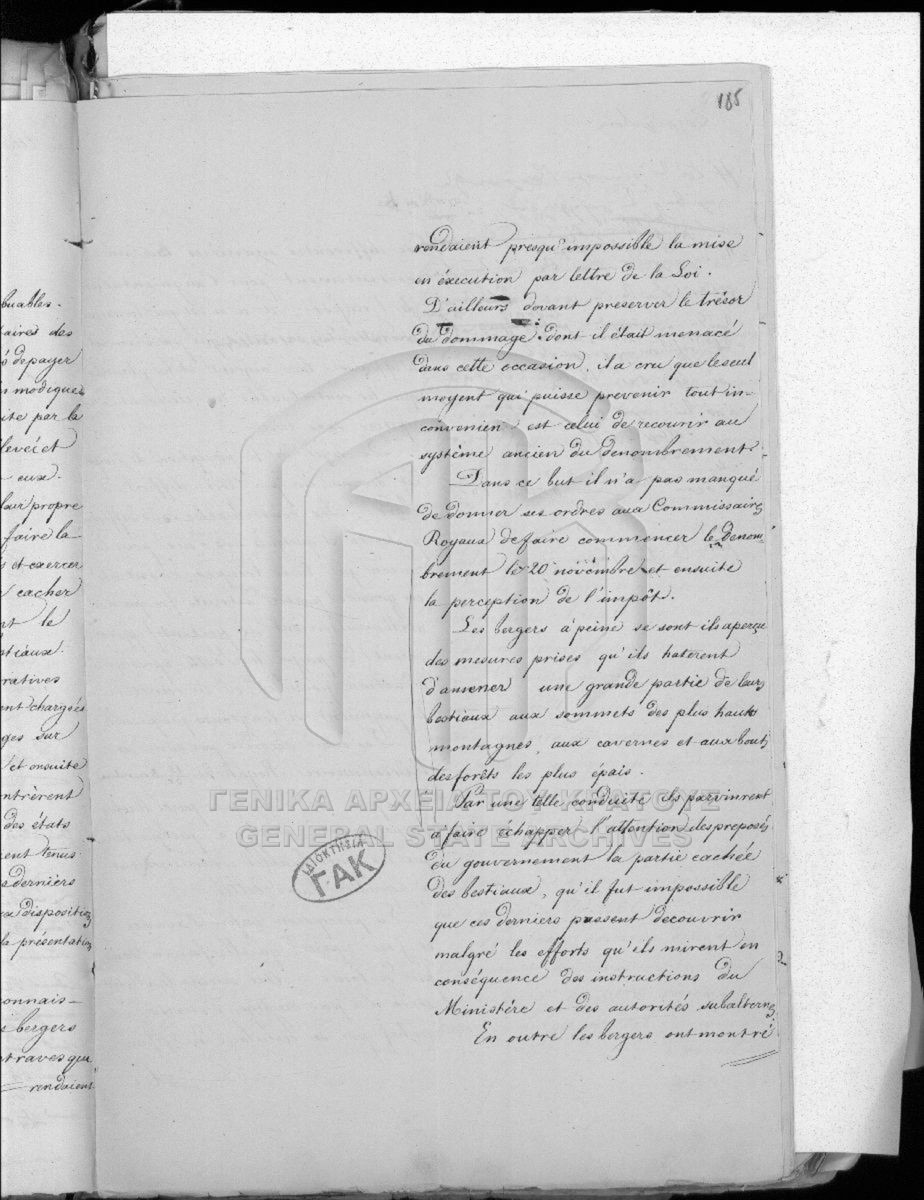 185
rendaient presqu'impossible la mise
en éxecution par lettre de la Loi.
D'ailleurs devant preserver le trésor
du dommage dont il était menacé
dans cette occasion, il a cru que le seul
moyent qui puisse prevenir tout in-
convenien est celui de recourir au
système ancien du denombrement.
Dans ce but il n'a pas manqué
de donner ses ordres aux Commissaires
Royaux de faire commencer le denom-
brement le 20 novembre et ensuite
la perception de l'impôt.
Les bergers à peine se sont ils aperçu
des mesures prises qu'ils haterent
d'amener une grande partie de leurs
bestiaux aux sommets des plus hauts
montagnes, aux cavernes et aux bouts
des forêts les plus épais.
Par une telle conduite ils parvinrent
à faire échapper l'attention des preposés
du gouvernement la partie cachée
des bestiaux, qu'il fut impossible
que ces derniers pussent decouvrir
malgré les efforts qu'ils mirent en
conséquence des instructions du
Ministère et des autorités subalternes
En outre les bergers ont montré
buables.
aires des
s de payer
n modique
ute par la
levé et
eux.
leur propre
faire la
s et exercer
cacher
nt le
stiaux.
ratives
ent chargées
ges sur
et ensuite
ntrèrent
des états
ent tenus
s derniers
disposition
la présentation
onnais-
s bergers
traves qui
rendaient
ΓΕΝΙΚΑ ΑΡΧΕΙΑ ΤΟΥ ΚΡΑΤΟΥΣ
GENERAL STATE ARCHIVES
ΙΔΙΟΚΤΗΣΙΑ
ΓΑΚ